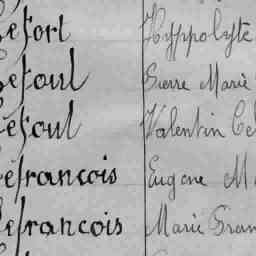 Lefort Hyppolyte
Lefoul Pierre Marie
Lefoul Valentin
Lefrancois Eugene
Lefrancois Marie